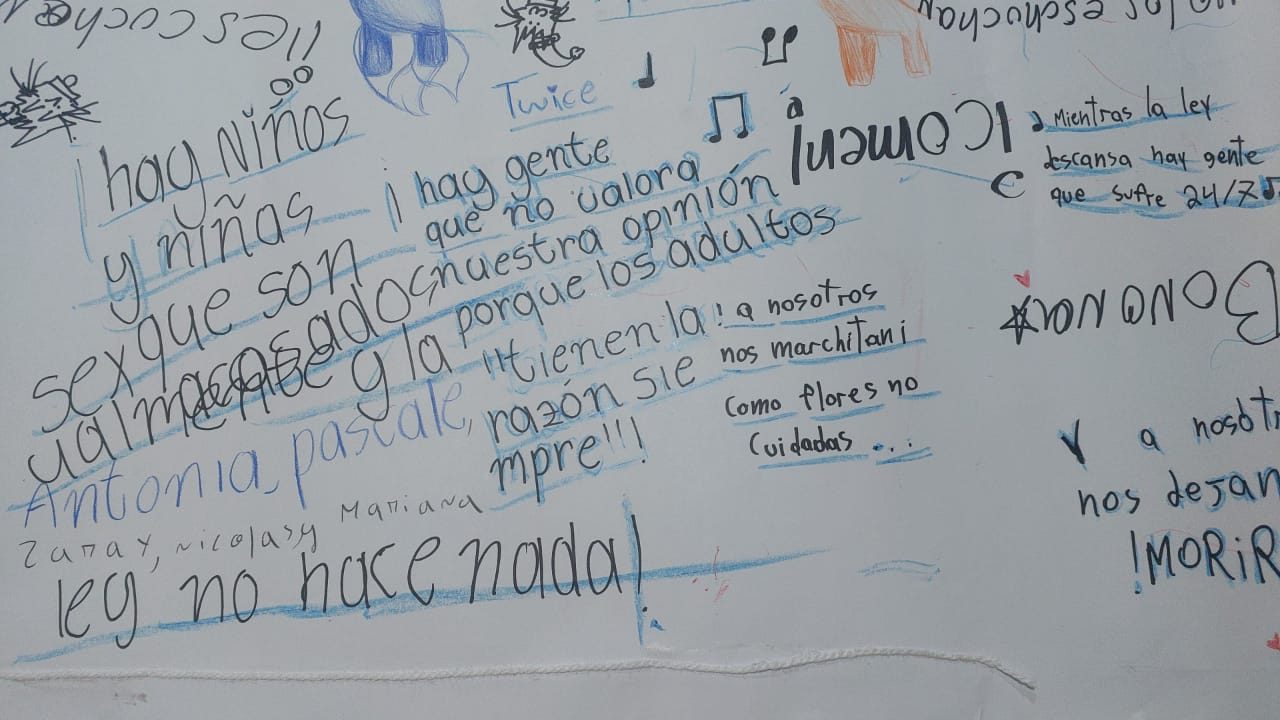 ¡¡escochar
no los eschochar
Twice
¡hay Niños
y niñas
que son
acosados
sexualmente y la
ley no hace nada!
¡hay gente
que no valora
nuestra opinión
porque los adultos
¡¡tienen la
razón sie
mpre!!!
Antonia, pascale,
zaray, nicolasy Mariana
a nosotros
nos marchitan¡
Como flores no
Cuidadas ...
ICOmen¡
Mientras la ley
descansa hay gente
que sufre 24/7
Y a nosotr
nos dejan
!MORiR